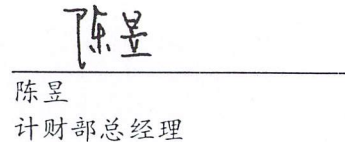 陈昱
陈昱
计财部总经理